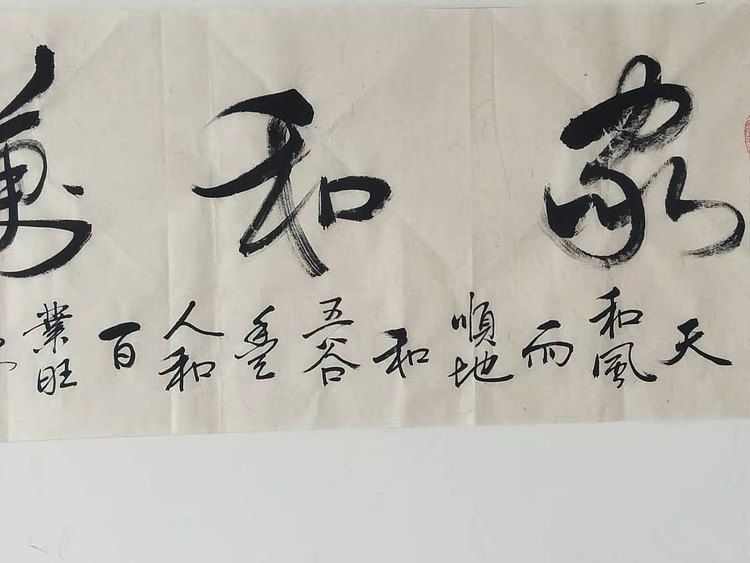 家和萬
天和風雨順地和五谷豐人和百業旺